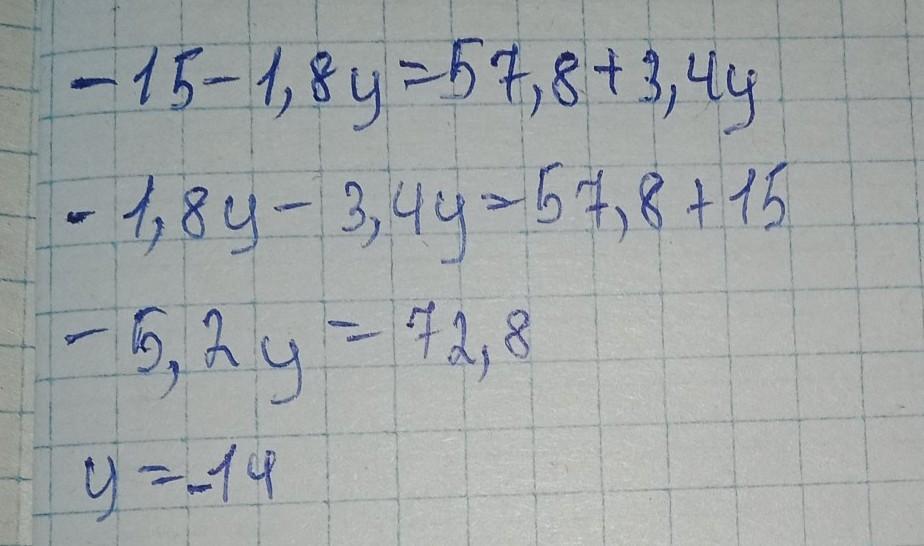 -15-1,8y=57,8+3,4y
-1,8y-3,4y=57,8+15
-5,2y=72,8
y=-14